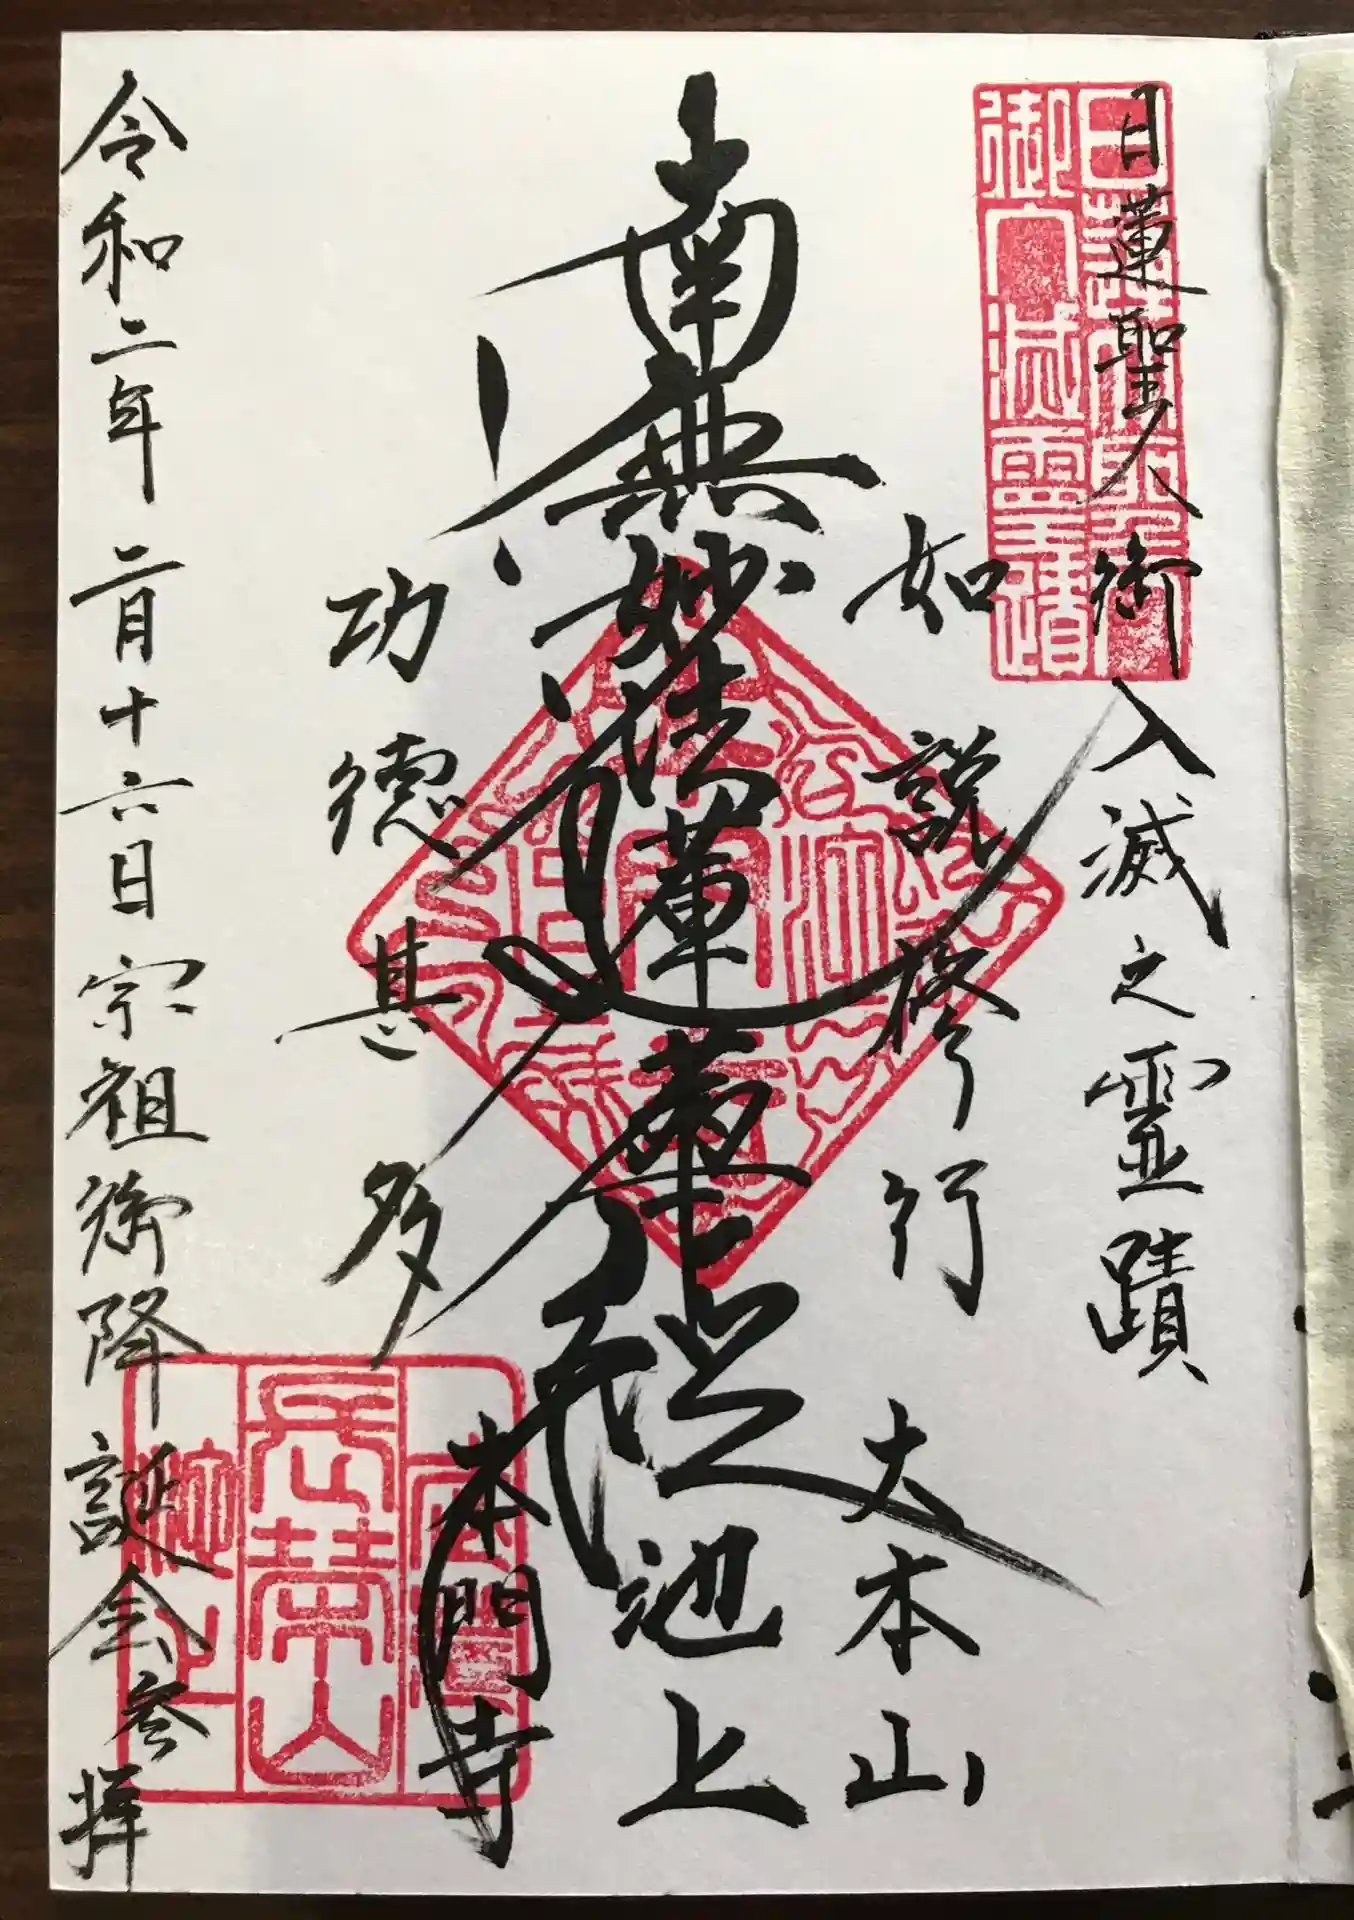 日蓮聖人御入滅之霊蹟
如説修行
大本山
南無妙法蓮華経
池上
功徳甚多
本門寺
令和二年二月十六日宗祖御降誕会参拝
御入滅霊蹟
長栄山